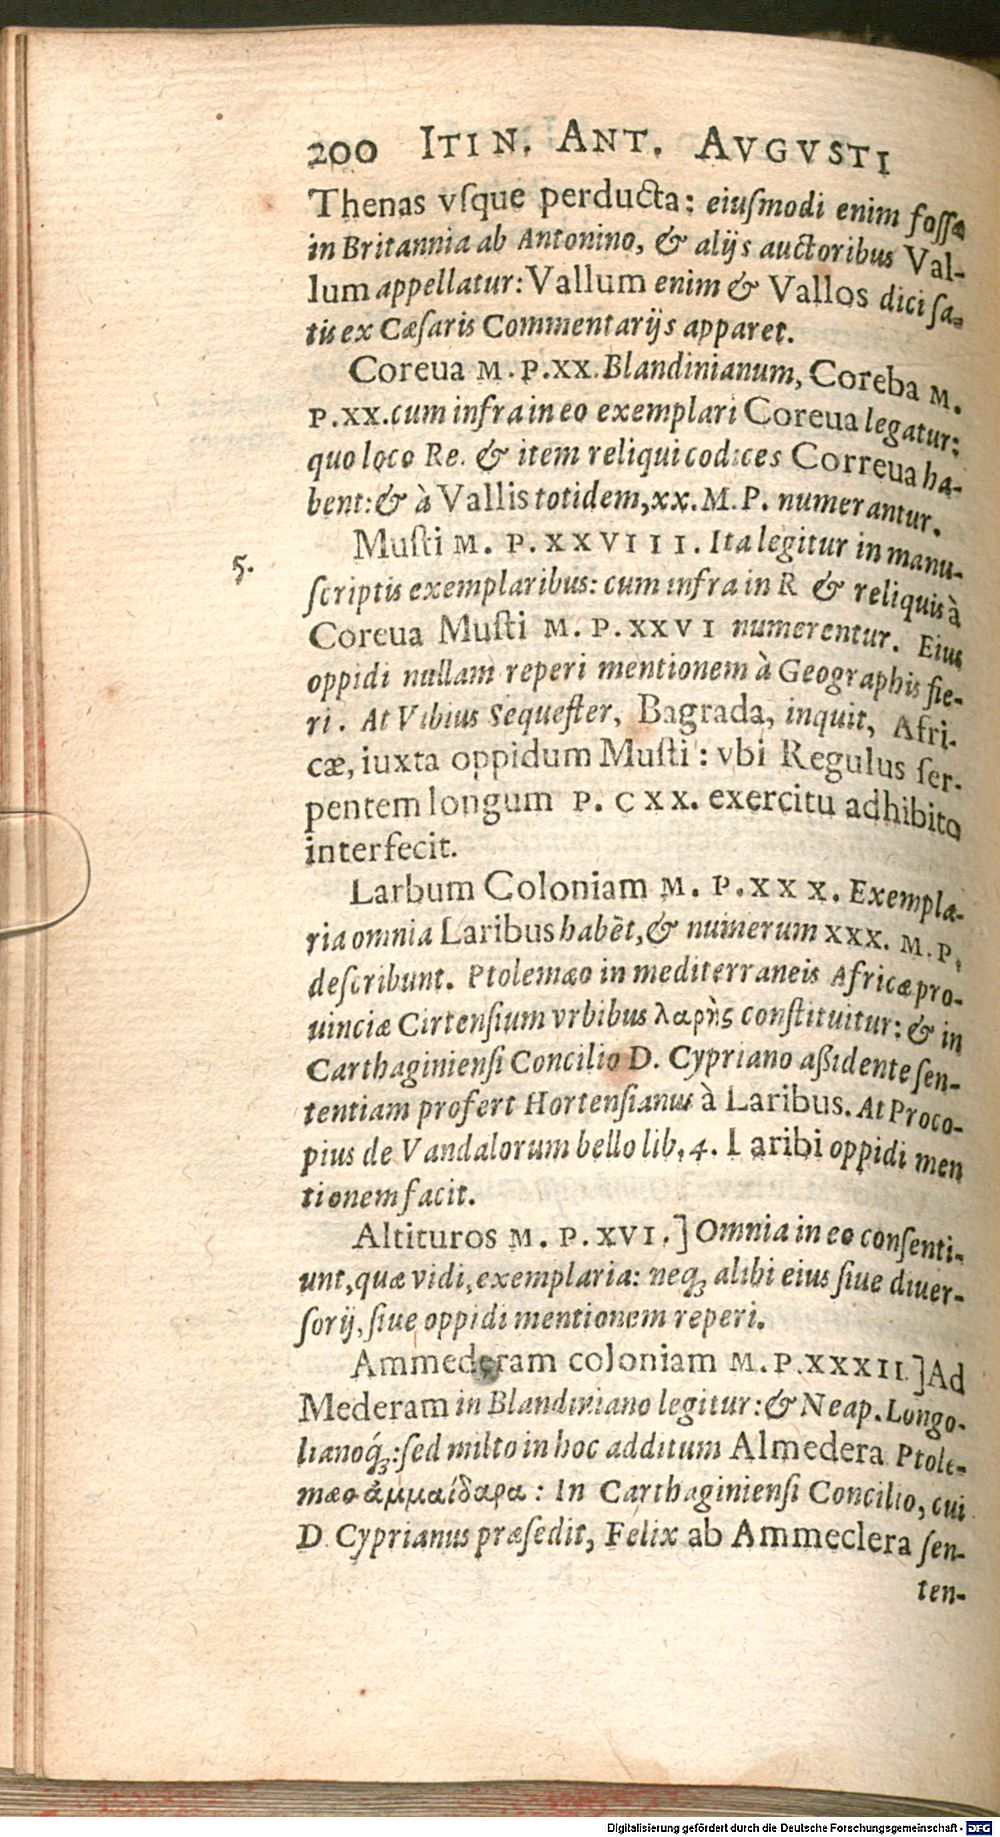 200 ITIN. ANT. AVGVSTI
Thenas vſque perducta: eiuſmodi enim foſſa
in Britannia ab Antonino, & alijs auctoribus Val-
lum appellatur: Vallum enim & Vallos dici ſa-
tis ex Cæſaris Commentarijs apparet.
Coreua M. P. XX. Blandinianum, Coreba M.
P. XX. cum infra in eo exemplari Coreua legatur:
quo loco Re. & item reliqui codices Correua ha-
bent: & à Vallis totidem, xx. M. P. numerantur.
5.
Muſti M. P. XXVIII. Ita legitur in manu-
ſcriptis exemplaribus: cum infra in R & reliquis à
Coreua Muſti M. P. XXVI numerentur. Eius
oppidi nullam reperi mentionem à Geographis fie-
ri. At Vibius Sequeſter, Bagrada, inquit, Afri-
cæ, iuxta oppidum Muſti: vbi Regulus ſer-
pentem longum P. CXX. exercitu adhibito
interfecit.
Larbum Coloniam M. P. XXX. Exempla-
ria omnia Laribus habēt, & numerum XXX. M. P.
deſcribunt. Ptolemæo in mediterraneis Africæ pro-
uinciæ Cirtenſium vrbibus λαρὴς conſtituitur: & in
Carthaginienſi Concilio D. Cypriano aßidente ſen-
tentiam profert Hortenſianus à Laribus. At Proco-
pius de Vandalorum bello lib. 4. Laribi oppidi men
tionem facit.
Altituros M. P. XVI.] Omnia in eo conſenti-
unt, quæ vidi, exemplaria: neq; alibi eius ſiue diuer-
ſorij, ſiue oppidi mentionem reperi.
Ammederam coloniam M. P. XXXII.] Ad
Mederam in Blandiniano legitur: & Neap. Longo-
lianoq́;: ſed milto in hoc additum Almedera Ptole-
mæo ἀμμαίδαρα: In Carthaginienſi Concilio, cui
D. Cyprianus præſedit, Felix ab Ammeclera ſen-
ten-
Digitalisierung gefördert durch die Deutsche Forschungsgemeinschaft - DFG